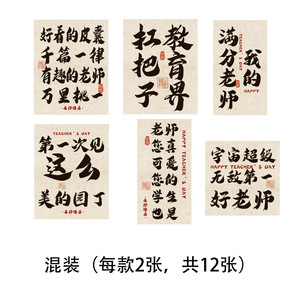 好看的皮囊
千篇一律
有趣的老师
万里挑一
教育界
扛把子
我的
满分老师
HAPPY
TEACHER'S DAY
第一次见
这么
美的园丁
老师
您真
可爱
您的
学生
也是
HAPPY TEACHER'S DAY
HAPPY TEACHER'S DAY
宇宙超级
无敌第一
好老师
混装（每款2张，共12张）